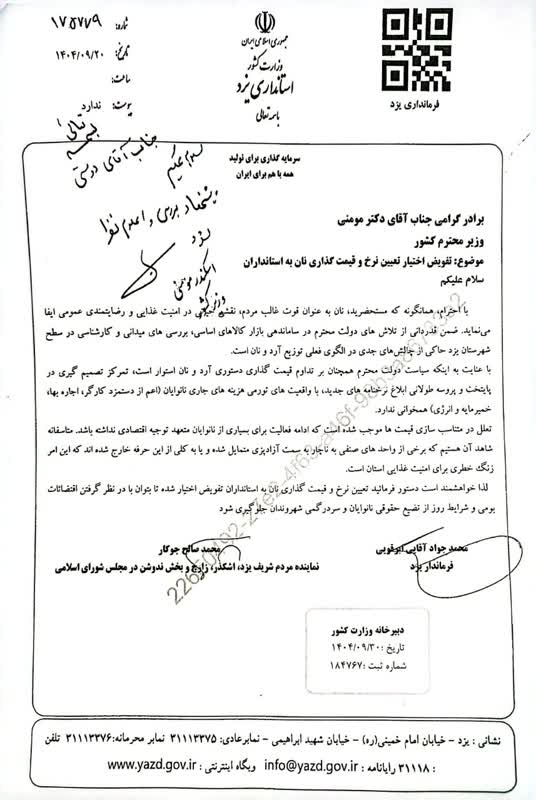 شماره: ۱۷۵۷۷۹
تاریخ: ۱۴۰۴/۰۹/۲۰
ساعت:
پیوست: ندارد
جمهوری اسلامی ایران
وزارت کشور
استانداری یزد
باسمه تعالی
فرمانداری یزد
بسمه تعالی
جناب آقای درستی
سلام علیکم
پیشنهاد بررسی و اعلام نظر
اسکندر مومنی
وزیر کشور
سرمایه گذاری برای تولید
همه با هم برای ایران
برادر گرامی جناب آقای دکتر مومنی
وزیر محترم کشور
موضوع: تفویض اختیار تعیین نرخ و قیمت گذاری نان به استانداران
سلام علیکم
با احترام، همانگونه که مستحضرید، نان به عنوان قوت غالب مردم، نقشی حیاتی در امنیت غذایی و رضایتمندی عمومی ایفا
می‌نماید. ضمن قدردانی از تلاش های دولت محترم در ساماندهی بازار کالاهای اساسی، بررسی های میدانی و کارشناسی در سطح
شهرستان یزد حاکی از چالش‌های جدی در الگوی فعلی توزیع آرد و نان است.
با عنایت به اینکه سیاست دولت محترم همچنان بر تداوم قیمت گذاری دستوری آرد و نان استوار است، تمرکز تصمیم گیری در
پایتخت و پروسه طولانی ابلاغ نرخنامه های جدید، با واقعیت های تورمی هزینه های جاری نانوایان (اعم از دستمزد کارگر، اجاره بها،
خمیرمایه و انرژی) همخوانی ندارد.
تعلل در متناسب سازی قیمت ها موجب شده است که ادامه فعالیت برای بسیاری از نانوایان متعهد توجیه اقتصادی نداشته باشد. متاسفانه
شاهد آن هستیم که برخی از واحد های صنفی به ناچار به سمت آزادپزی متمایل شده و یا به کلی از این حرفه خارج شده اند که این امر
زنگ خطری برای امنیت غذایی استان است.
لذا خواهشمند است دستور فرمائید تعیین نرخ و قیمت گذاری نان به استانداران تفویض اختیار شده تا بتوان با در نظر گرفتن اقتضائات
بومی و شرایط روز از تضیع حقوقی نانوایان و سردرگمی شهروندان جلوگیری شود
محمد جواد آقایی ابرقویی
فرماندار یزد
محمد صالح جوکار
نماینده مردم شریف یزد، اشکذر، زارچ و بخش ندوشن در مجلس شورای اسلامی
دبیرخانه وزارت کشور
تاریخ: ۱۴۰۴/۰۹/۳۰
شماره ثبت: ۱۸۴۷۶۷
نشانی: یزد - خیابان امام خمینی(ره) - خیابان شهید ابراهیمی - نمابرعادی: ۳۱۱۱۳۳۷۵ نمابر محرمانه: ۳۱۱۱۳۳۷۶ تلفن
: ۳۱۱۱۸ رایانامه: info@yazd.gov.ir وبگاه اینترنتی: www.yazd.gov.ir